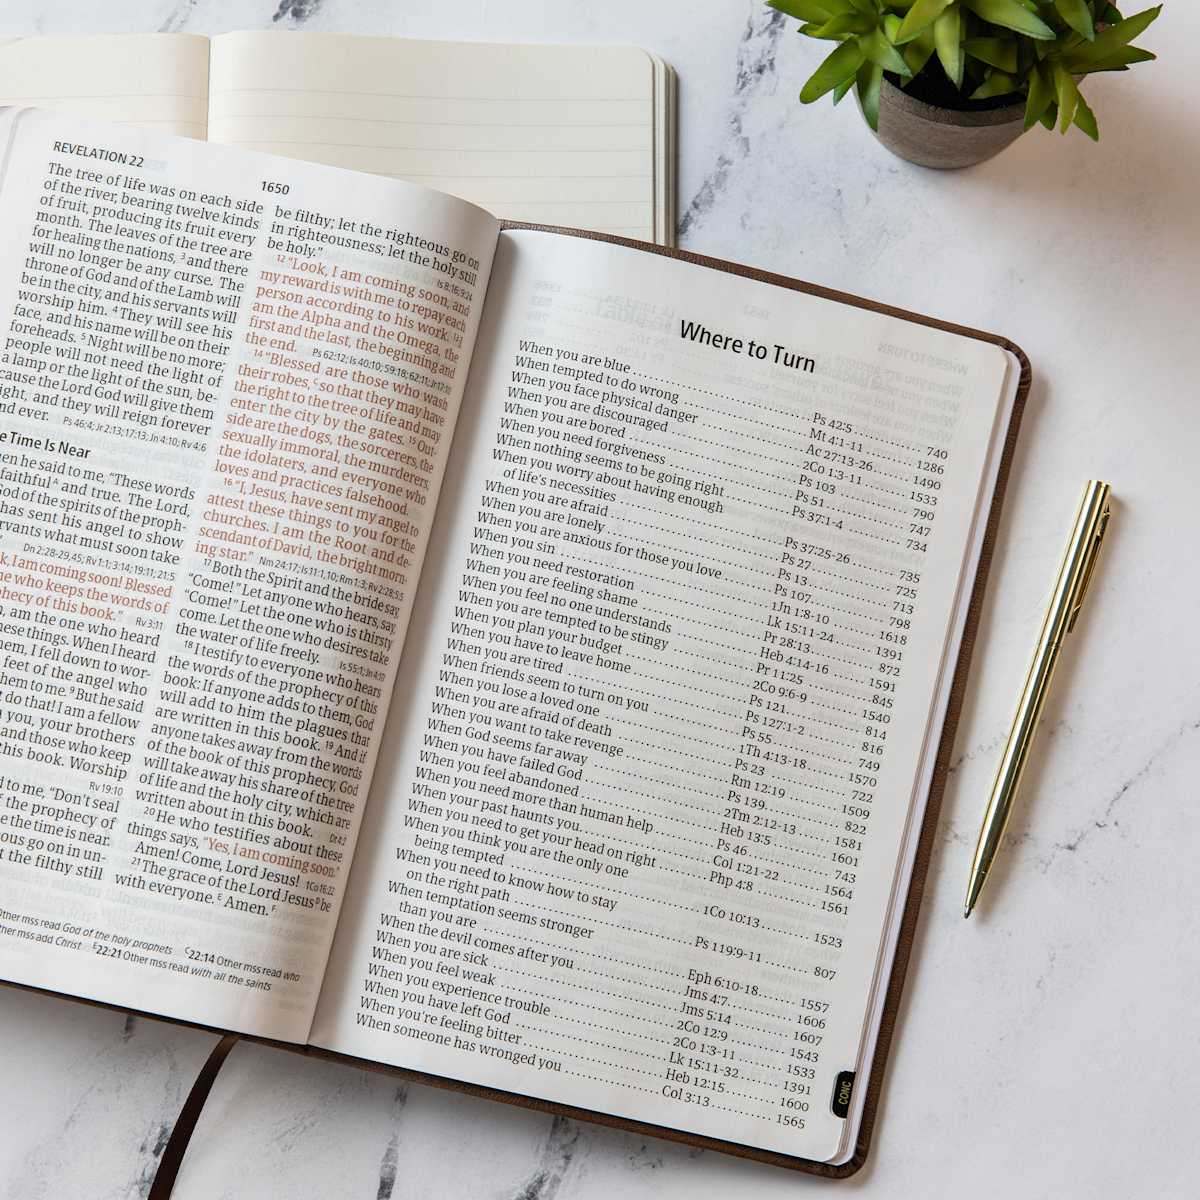 REVELATION 22
1650
The tree of life was on each side
of the river, bearing twelve kinds
of fruit, producing its fruit every
month. The leaves of the tree are
for healing the nations, 3 and there
will no longer be any curse. The
throne of God and of the Lamb will
be in the city, and his servants will
worship him. 4 They will see his
face, and his name will be on their
foreheads. 5 Night will be no more;
people will not need the light of
a lamp or the light of the sun, be-
cause the Lord God will give them
ight, and they will reign forever
nd ever. Ps 46:4; Jr 2:13; 17:13; Jn 4:10; Rv 4:6
e Time Is Near
en he said to me, "These words
faithful A and true. The Lord,
God of the spirits of the proph-
has sent his angel to show
rvants what must soon take
Dn 2:28-29,45; Rv 1:1; 3:14; 19:11; 21:5
k, I am coming soon! Blessed
ne who keeps the words of
phecy of this book." Rv 3:11
, am the one who heard
hese things. When I heard
hem, I fell down to wor-
feet of the angel who
hem to me. 9 But he said
t do that! I am a fellow
you, your brothers
and those who keep
this book. Worship
Rv 19:10
d to me, "Don't seal
f the prophecy of
e the time is near.
ous go on in un-
t the filthy still
be filthy; let the righteous go on
in righteousness; let the holy still
be holy." Is 8:16; 9:24
12 "Look, I am coming soon, and
my reward is with me to repay each
person according to his work. 13 I
am the Alpha and the Omega, the
first and the last, the beginning and
the end. Ps 62:12; Is 40:10; 59:18; 62:11; Jr 17:10
14 "Blessed are those who wash
their robes, C so that they may have
the right to the tree of life and may
enter the city by the gates. 15 Out-
side are the dogs, the sorcerers, the
sexually immoral, the murderers,
the idolaters, and everyone who
loves and practices falsehood.
16 "I, Jesus, have sent my angel to
attest these things to you for the
churches. I am the Root and de-
scendant of David, the bright morn-
ing star." Nm 24:17; Is 11:1,10; Rm 1:3; Rv 2:28; 5:5
17 Both the Spirit and the bride say,
"Come!" Let anyone who hears, say,
"Come!" Let the one who is thirsty
come. Let the one who desires take
the water of life freely. Is 55:1; Jn 4:10
18 I testify to everyone who hears
the words of the prophecy of this
book: If anyone adds to them, God
will add to him the plagues that
are written in this book. 19 And if
anyone takes away from the words
of the book of this prophecy, God
will take away his share of the tree
of life and the holy city, which are
written about in this book. Dt 4:2
20 He who testifies about these
things says, "Yes, I am coming soon."
Amen! Come, Lord Jesus! 1Co 16:22
21 The grace of the Lord Jesus D be
with everyone. E Amen. F
Other mss read God of the holy prophets C 22:14 Other mss read who
ther mss add Christ E 22:21 Other mss read with all the saints
Where to Turn
When you are blue.......... Ps 42:5.......... 740
When tempted to do wrong.......... Mt 4:1-11.......... 1286
When you face physical danger.......... Ac 27:13-26.......... 1490
When you are discouraged.......... 2Co 1:3-11.......... 1533
When you are bored.......... Ps 103.......... 790
When you need forgiveness.......... Ps 51.......... 747
When nothing seems to be going right.......... Ps 37:1-4.......... 734
When you worry about having enough
of life's necessities.......... Ps 37:25-26.......... 735
When you are afraid.......... Ps 27.......... 725
When you are lonely.......... Ps 13.......... 713
When you are anxious for those you love.......... Ps 107.......... 798
When you sin.......... 1Jn 1:8-10.......... 1618
When you need restoration.......... Lk 15:11-24.......... 1391
When you are feeling shame.......... Pr 28:13.......... 872
When you feel no one understands.......... Heb 4:14-16.......... 1591
When you are tempted to be stingy.......... Pr 11:25.......... 845
When you plan your budget.......... 2Co 9:6-9.......... 1540
When you have to leave home.......... Ps 121.......... 814
When you are tired.......... Ps 127:1-2.......... 816
When friends seem to turn on you.......... Ps 55.......... 749
When you lose a loved one.......... 1Th 4:13-18.......... 1570
When you are afraid of death.......... Ps 23.......... 722
When you want to take revenge.......... Rm 12:19.......... 1509
When God seems far away.......... Ps 139.......... 822
When you have failed God.......... 2Tm 2:12-13.......... 1581
When you feel abandoned.......... Heb 13:5.......... 1601
When you need more than human help.......... Ps 46.......... 743
When your past haunts you.......... Col 1:21-22.......... 1564
When you need to get your head on right.......... Php 4:8.......... 1561
When you think you are the only one
being tempted.......... 1Co 10:13.......... 1523
When you need to know how to stay
on the right path.......... Ps 119:9-11.......... 807
When temptation seems stronger
than you are.......... Eph 6:10-18.......... 1557
When the devil comes after you.......... Jms 4:7.......... 1606
When you are sick.......... Jms 5:14.......... 1607
When you feel weak.......... 2Co 12:9.......... 1543
When you experience trouble.......... 2Co 1:3-11.......... 1533
When you have left God.......... Lk 15:11-32.......... 1391
When you're feeling bitter.......... Heb 12:15.......... 1600
When someone has wronged you.......... Col 3:13.......... 1565
CONC